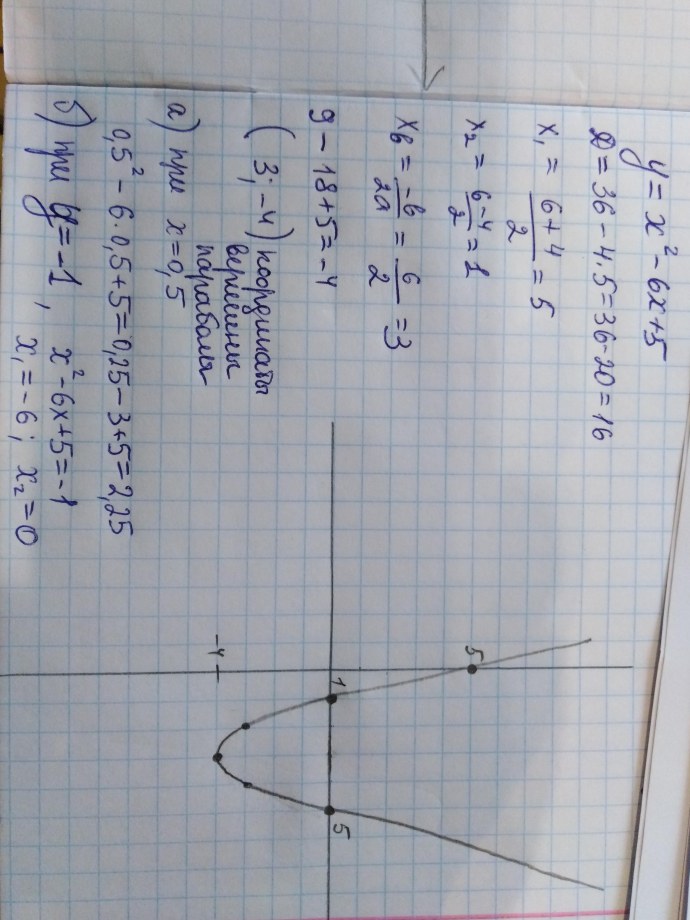 y = x² - 6x + 5
D = 36 - 4·5 = 36 - 20 = 16
x₁ = (6 + 4)/2 = 5
x₂ = (6 - 4)/2 = 1
xв = -в/2а = 6/2 = 3
9 - 18 + 5 = -4
(3; -4) координаты
вершины
параболы
а) при x = 0,5
0,5² - 6·0,5 + 5 = 0,25 - 3 + 5 = 2,25
б) при y = -1, x² - 6x + 5 = -1
x₁ = -6; x₂ = 0
5
1
5
-4